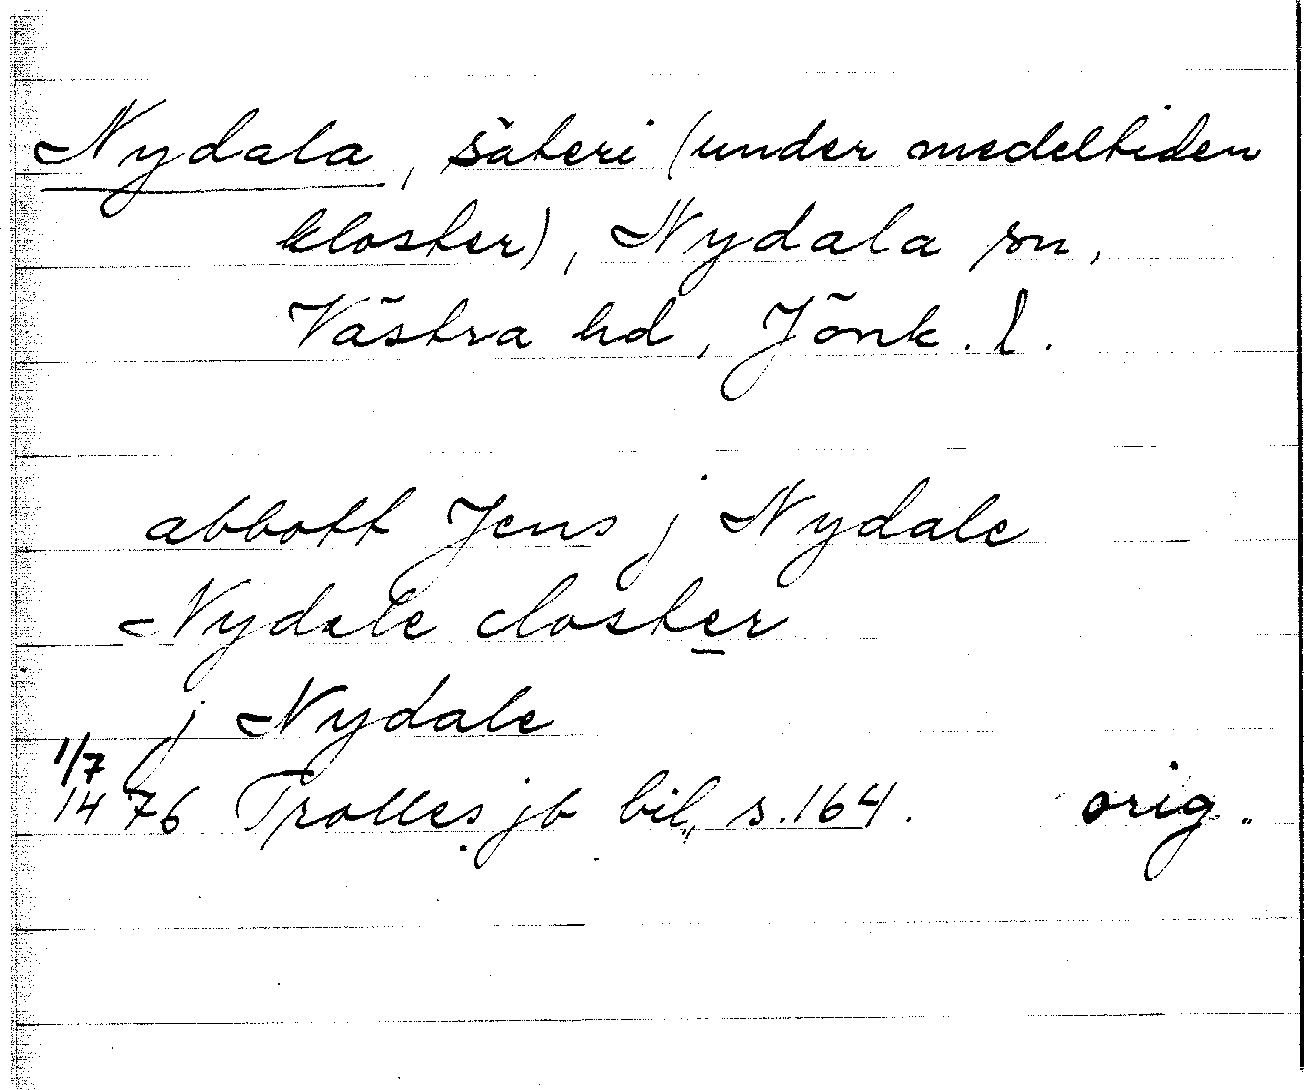 Nydala, säteri (under medeltiden
kloster), Nydala sn,
Västra hd, Jönk. l.
abbott Jens j Nydale
Nydale closter
j Nydale
1/7
1476 Trolles jb bil, s. 164. orig.